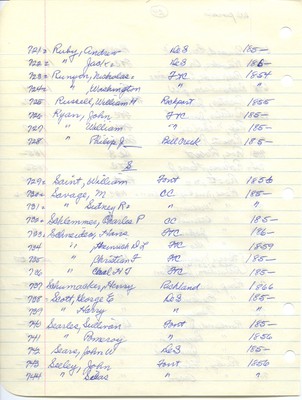 721 = Ruby, Andrew DeB 185-
722 = " Jack DeB 185-
723 = Runyon, Nicholas FTC 1854
724 = " Washington " "
725 Russell, William H Rockport 1855
726 Ryan, John FTC 185-
727 " William " 185-
728 " Philip J Bell Creek 185-
S
729 = Saint, William Font 1856
730 = Savage, M OC 185-
731 = " Sidney R " 185-
732 = Schlemmer, Charles P OC 185-
733 = Schneider, Hans OTC 186-
734 " Heinrich D L OTC 1859
735 " Christian F OTC 185-
736 " Carl H F OTC 185-
737 Schumacher, Henry Richland 1866
738 Scott, George E DeB 185-
739 " Harry " 185-
740 Searles, Sullivan Font 185-
741 " Pomeroy " 1856
742 Sears, John W DeB 185-
743 Seeley, John Font 1856
744 " Silas " "